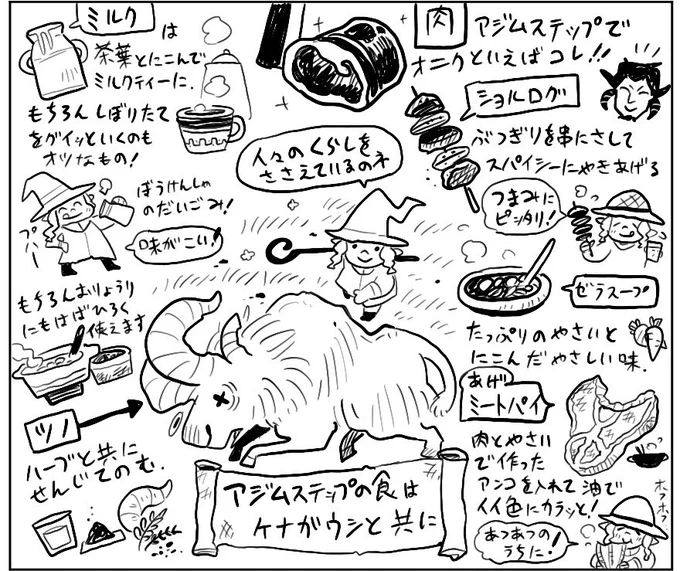 ミルク
は
茶葉とにこんで
ミルクティーに.
もちろん しぼりたて
をグイッといくのも
オツなもの!
ぼうけんしゃ
のだいごみ!
プハー
味がこい!
もちろんおりょうり
にもはばひろく
使えます
ツノ
ハーブと共に
せんじてのむ.
人々のくらしを
ささえているのネ
アジムステップの食は
ケナガウシと共に
肉
アジムステップで
オニクといえばコレ!!
ショルログ
ぶつぎりを串にさして
スパイシーにやきあげる
つまみに
ピッタリ!
ゼラスープ
たっぷりのやさいと
にこんだやさしい味.
あげ
ミートパイ
肉とやさい
で作った
アンコを入れて油で
イイ色にカラッと!
ホフホフ
あつあつの
うちに!